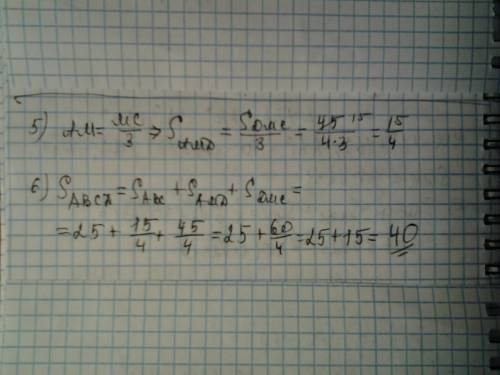 5) AM = MC/3 => S_AMD = S_DMC/3 = 45 15/4·3 = 15/4
6) S_ABCD = S_ABC + S_AMD + S_DMC =
= 25 + 15/4 + 45/4 = 25 + 60/4 = 25 + 15 = 40